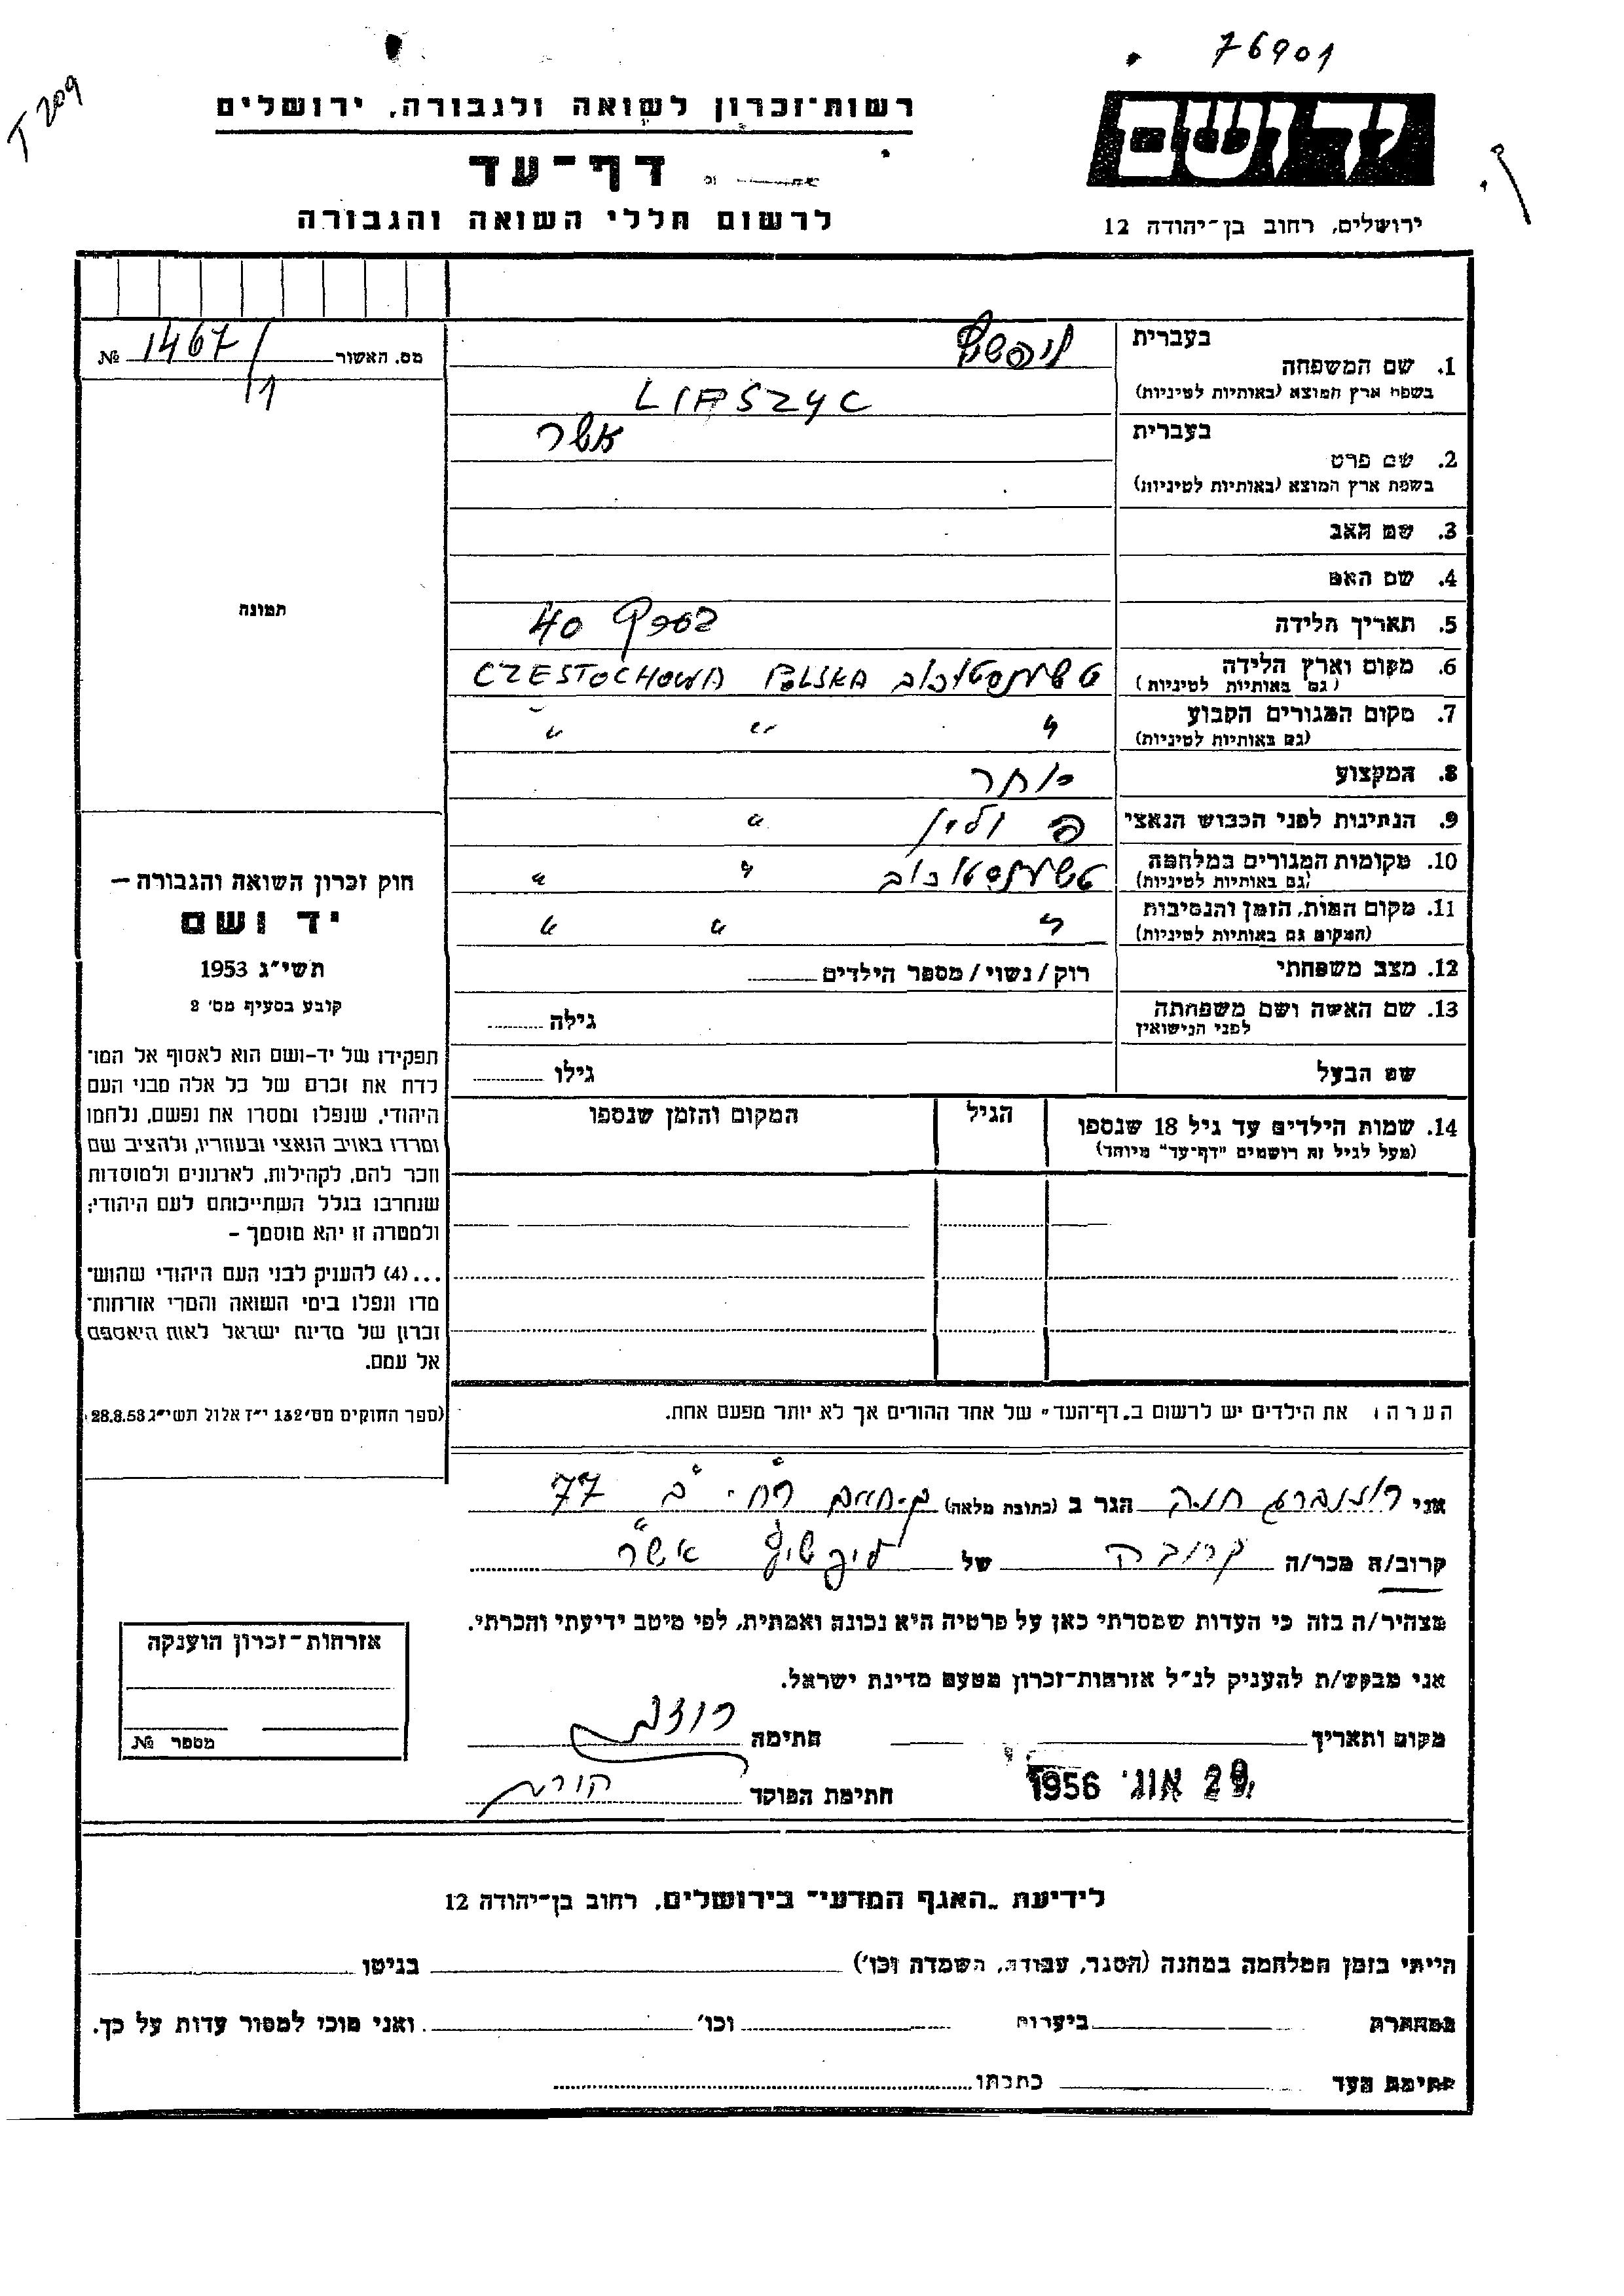 76901
T 209
רשות-זכרון לשואה ולגבורה, ירושלים
יד ושם
דף-עד
לרשום חללי השואה והגבורה
ירושלים, רחוב בן-יהודה 12
מס. האשור 1467/1 №
בעברית
1. שם המשפחה ליפשיץ
בשפת ארץ המוצא (באותיות לטיניות) LIPSZYC
בעברית אשר
2. שם פרטי
בשפת ארץ המוצא (באותיות לטיניות)
3. שם האב
4. שם האם
תמונה
5. תאריך הלידה 40
6. מקום וארץ הלידה טשענסטאכוב CZESTOCHOWA POLSKA
(גם באותיות לטיניות)
7. מקום המגורים הקבוע " " "
(גם באותיות לטיניות)
8. המקצוע סוחר
9. הנתינות לפני הכבוש הנאצי פולין "
10. מקומות המגורים במלחמה טשענסטאכוב " "
(גם באותיות לטיניות)
11. מקום המות, הזמן והנסיבות " " "
(המקום גם באותיות לטיניות)
12. מצב משפחתי רוק/נשוי/מספר הילדים
13. שם האשה ושם משפחתה גילה
לפני הנישואין
שם הבעל גילו
14. שמות הילדים עד גיל 18 שנספו הגיל המקום והזמן שנספו
(מעל לגיל זה רושמים "דף-עד" מיוחד)
חוק זכרון השואה והגבורה –
יד ושם
תשי"ג 1953
קובע בסעיף מס' 2
תפקידו של יד-ושם הוא לאסוף אל המו-
לדת את זכרם של כל אלה מבני העם
היהודי, שנפלו ומסרו את נפשם, נלחמו
ומרדו באויב הנאצי ובעוזריו, ולהציב שם
וזכר להם, לקהילות, לארגונים ולמוסדות
שנחרבו בגלל השתייכותם לעם היהודי;
ולמטרה זו יהא מוסמך –
...(4) להעניק לבני העם היהודי שהוש-
מדו ונפלו בימי השואה והמרי אזרחות-
זכרון של מדינת ישראל לאות היאספם
אל עמם.
(ספר החוקים מס' 132 י"ז אלול תשי"ג 28.8.53)
הערה: את הילדים יש לרשום ב"דף-העד" של אחד ההורים אך לא יותר מפעם אחת.
אני רוזנברג חנה הגר ב (כתובת מלאה) 77
קרוב/ה מכר/ה קרובה של ליפשיץ אשר
מצהיר/ה בזה כי העדות שמסרתי כאן על פרטיה היא נכונה ואמתית, לפי מיטב ידיעתי והכרתי.
אני מבקש/ת להעניק לנ"ל אזרחות-זכרון מטעם מדינת ישראל.
אזרחות-זכרון הוענקה
מספר №
מקום ותאריך חתימה
29 אוג' 1956 חתימת הפוקד
לידיעת "האגף המדעי" בירושלים, רחוב בן-יהודה 12
הייתי בזמן המלחמה במחנה (הסגר, עבודה, השמדה וכו') בגיטו
במחתרת ביערות וכו' ואני מוכן למסור עדות על כך.
חתימת העד כתבתו